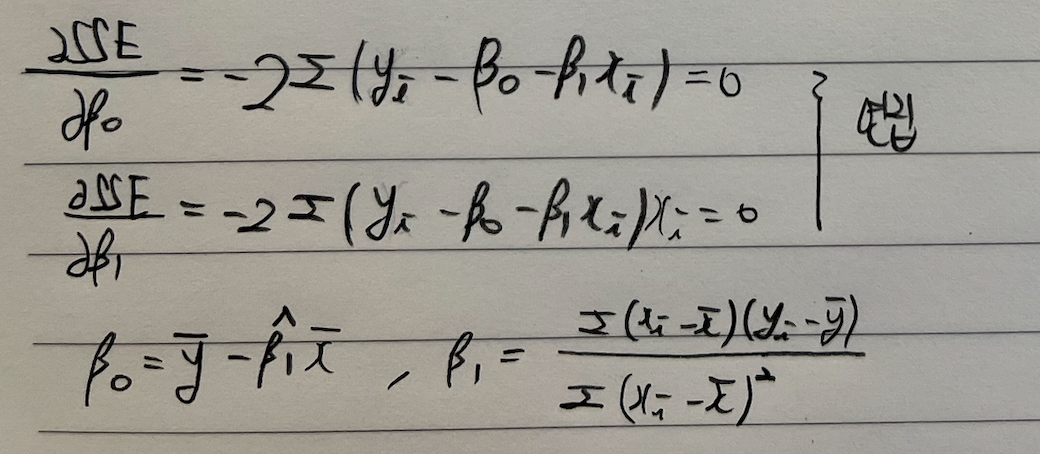 ∂SSE/∂β₀ = -2Σ(yᵢ - β₀ - β₁xᵢ) = 0
∂SSE/∂β₁ = -2Σ(yᵢ - β₀ - β₁xᵢ)xᵢ = 0
β₀ = ȳ - β̂₁x̄ , β₁ = Σ(xᵢ - x̄)(yᵢ - ȳ) / Σ(xᵢ - x̄)²